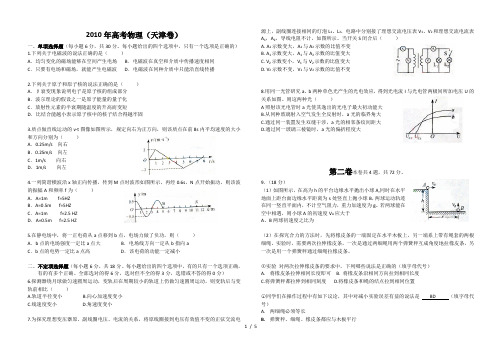 2010年高考物理（天津卷）
一．单项选择题（每小题6分，共30分。每小题给出的四个选项中，只有一个选项是正确的）
1.下列关于电磁波的说法正确的是（ ）
A．均匀变化的磁场能够在空间产生电场 B．电磁波在真空和介质中传播速度相同
C．只要有电场和磁场，就能产生电磁波 D．电磁波在同种介质中只能沿直线传播
2.下列关于原子和原子核的说法正确的是（ ）
A．β衰变现象说明电子是原子核的组成部分
B．玻尔理论的假设之一是原子能量的量子化
C．放射性元素的半衰期随温度的升高而变短
D．比结合能越小表示原子核中的核子结合得越牢固
3.质点做直线运动的v-t图像如图所示，规定向右为正方向，则该质点在前8s内平均速度的大小
和方向分别为（ ）
A．0.25m/s 向右
B．0.25m/s 向左
C．1m/s 向右
D．1m/s 向左
4.一列简谐横波沿x轴正向传播，传到M点时波形如图所示，再经0.6s，N点开始振动，则该波
的振幅A和频率f为（ ）
A．A=1m f=5HZ
B．A=0.5m f=5HZ
C．A=1m f=2.5 HZ
D．A=0.5m f=2.5 HZ
5.在静电场中，将一正电荷从a点移到b点，电场力做了负功，则（ ）
A．b点的电场强度一定比a点大 B．电场线方向一定从b指向a
C．b点的电势一定比a点高 D．该电荷的动能一定减小
二．不定项选择题（每小题6分，共18分。每小题给出的四个选项中，有的只有一个选项正确，
有的有多个正确，全部选对的得6分，选对但不全的得3分，选错或不答的得0分）
6.探测器绕月球做匀速圆周运动，变轨后在周期较小的轨道上仍做匀速圆周运动，则变轨后与变
轨前相比（ ）
A.轨道半径变小 B.向心加速度变小
C.线速度变小 D.角速度变小
7.为探究理想变压器原、副线圈电压、电流的关系，将原线圈接到电压有效值不变的正弦交流电
源上，副线圈连接相同的灯泡L₁、L₂，电路中分别接了理想交流电压表V₁、V₂和理想交流电流表
A₁、A₂，导线电阻不计，如图所示。当开关S闭合后（ ）
A. A₁示数变大，A₁与A₂示数的比值不变
B. A₁示数变大，A₁与A₂示数的比值变大
C. V₂示数变小，V₁与V₂示数的比值变大
D. V₂示数不变，V₁与V₂示数的比值不变
8.用同一光管研究a、b两种单色光产生的光电效应，得到光电流I与光电管两极间所加电压U的
关系如图。则这两种光（ ）
A.照射该光电管时a光使其逸出的光电子最大初动能大
B.从同种玻璃射入空气发生全反射时，a光的临界角大
C.通过同一装置发生双缝干涉，a光的相邻条纹间距大
D.通过同一玻璃三棱镜时，a光的偏折程度大
第二卷 本卷共4题，共72分。
9.（18分）
（1）如图所示，在高为h的平台边缘水平抛出小球A,同时在水平
地面上距台面边缘水平距离为s处竖直上抛小球B,两球运动轨迹
在同一竖直平面内，不计空气阻力，重力加速度为g.若两球能在
空中相遇，则小球A的初速度VA应大于
A、B两球初速度之比为
（2）在探究合力的方法时，先将橡皮条的一端固定在水平木板上，另一端系上带有绳套的两根
细绳。实验时，需要两次拉伸橡皮条，一次是通过两细绳用两个弹簧秤互成角度地拉橡皮条，另
一次是用一个弹簧秤通过细绳拉橡皮条。
①实验 对两次拉伸橡皮条的要求中，下列哪些说法是正确的（填字母代号）
A. 将橡皮条拉伸相同长度即可 B. 将橡皮条沿相同方向拉到相同长度
C.将弹簧秤都拉伸到相同刻度 D.将橡皮条和绳的结点拉到相同位置
②同学们在操作过程中有如下议论，其中对减小实验误差有益的说法是 BD （填字母代
号）
A．两细绳必须等长
B．弹簧秤、细绳、橡皮条都应与木板平行
1 / 5